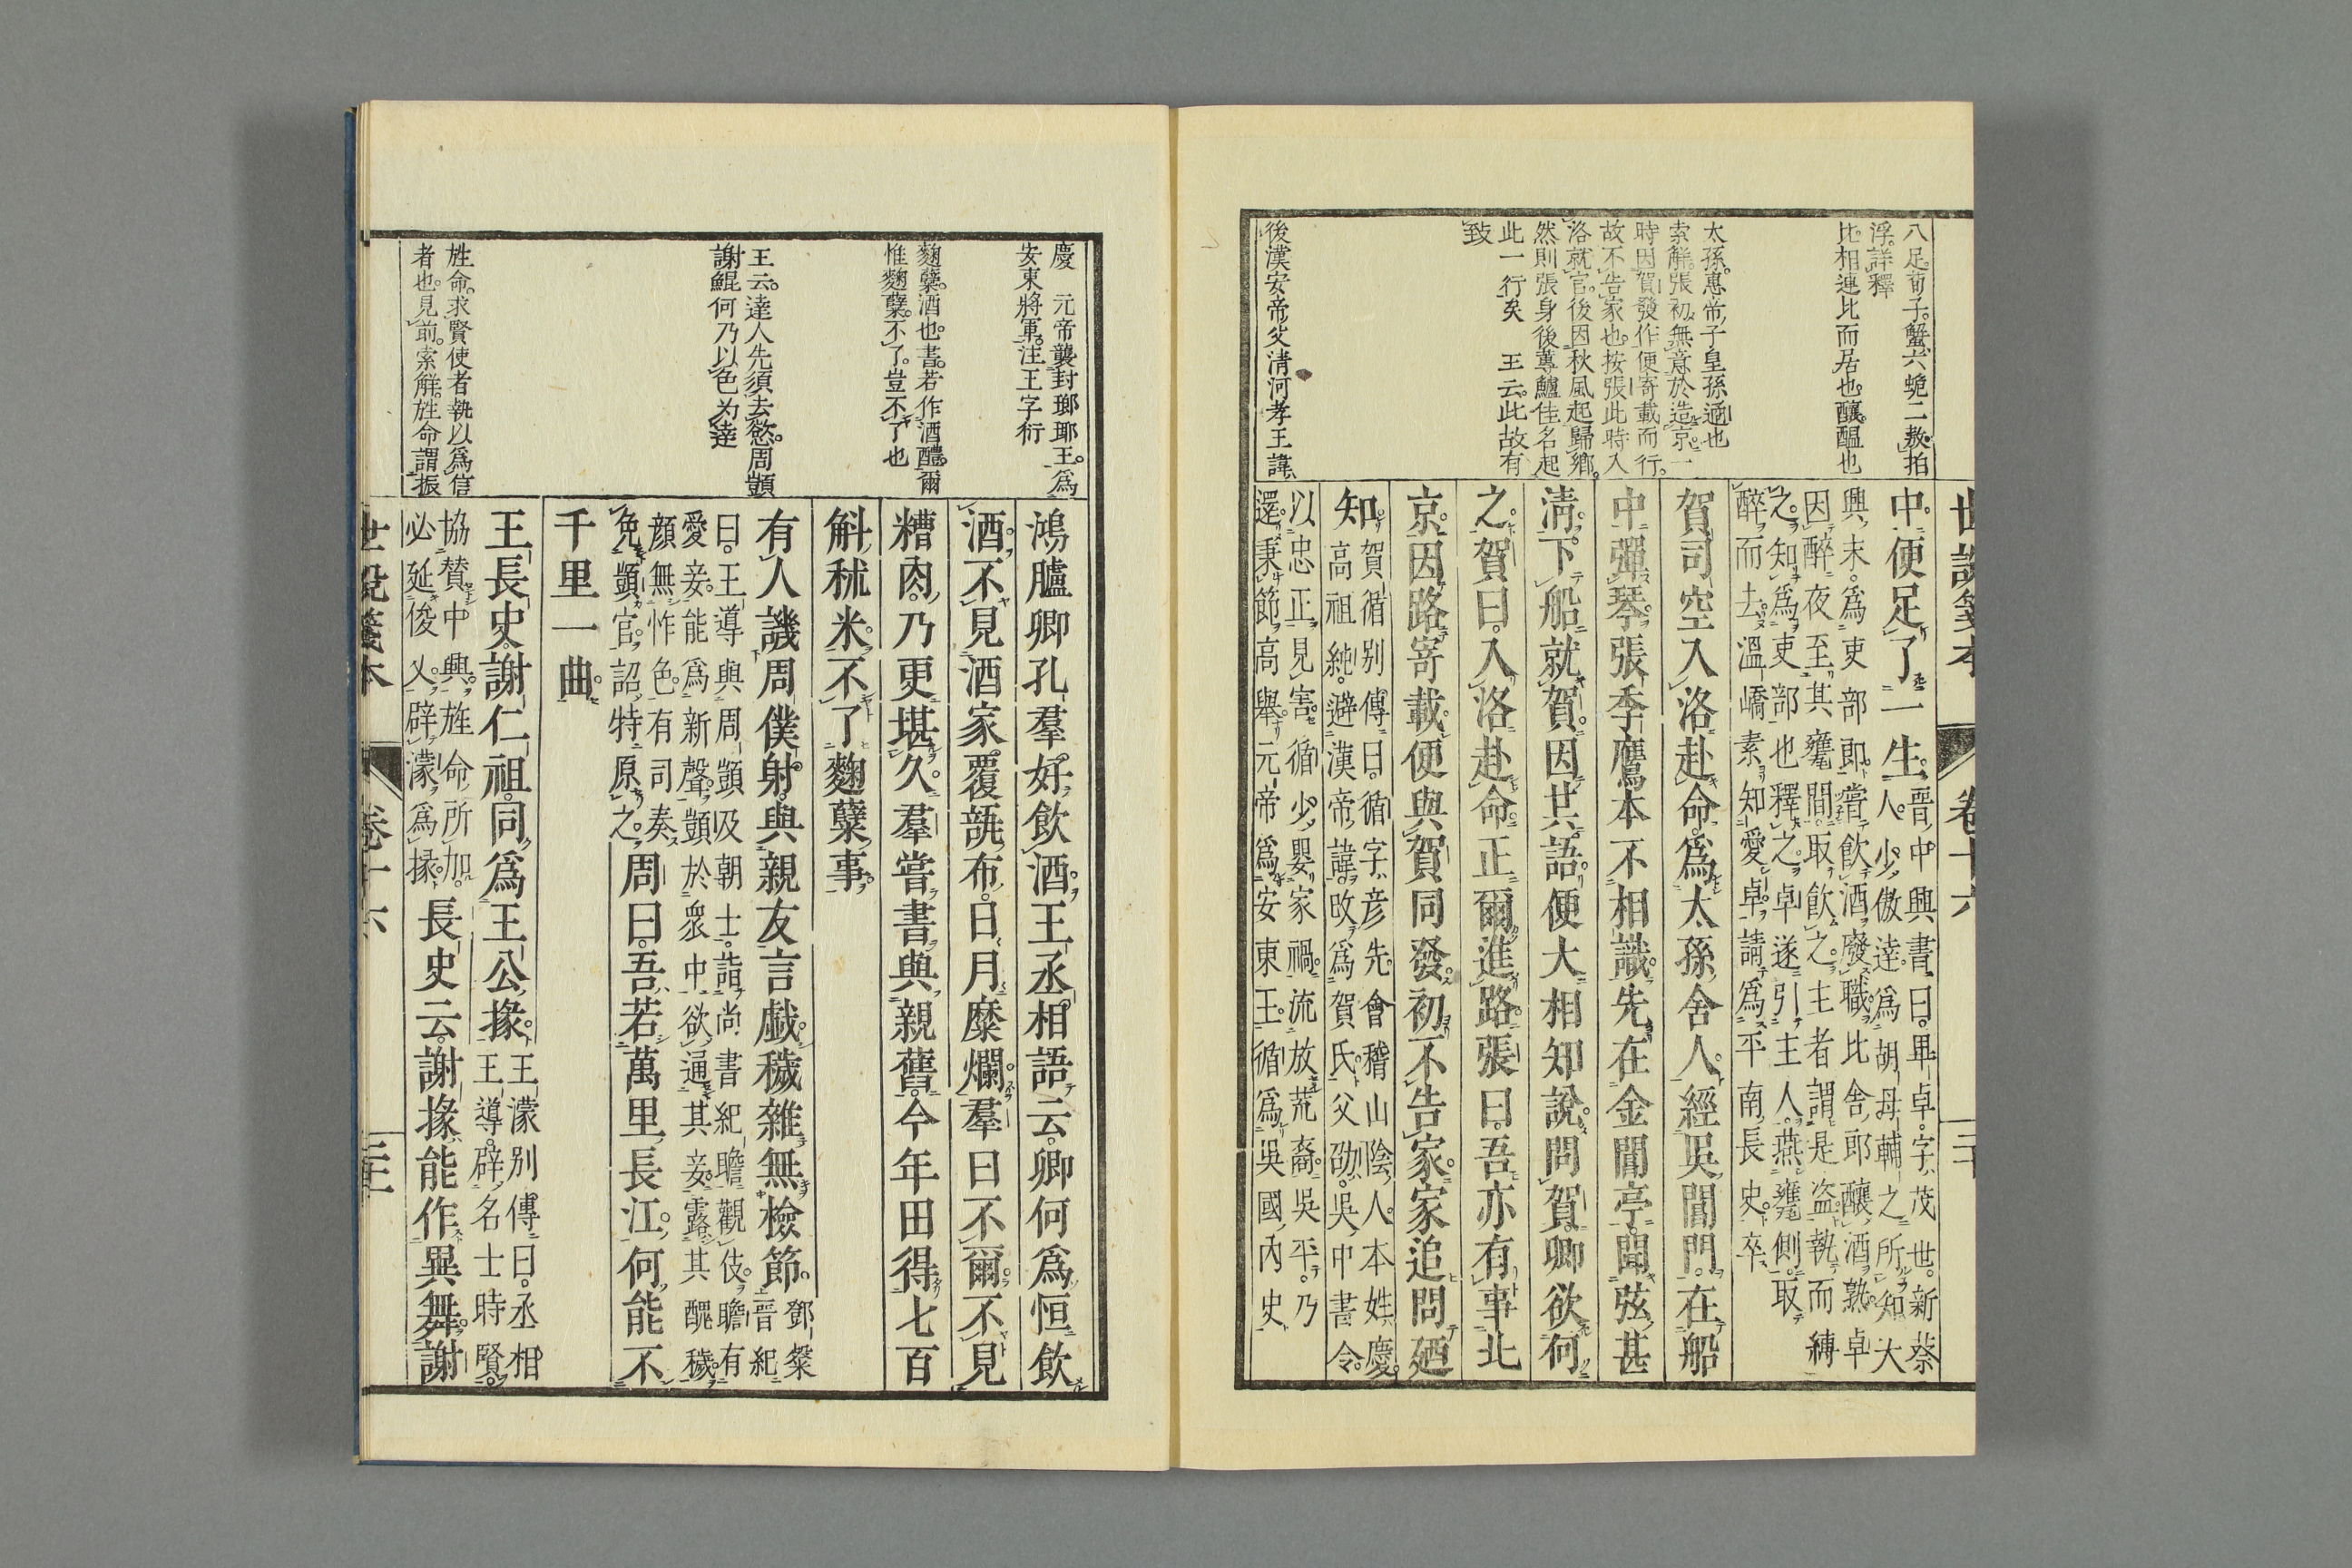 世說箋本 卷十六
八足荀子蟹六蛫二敖拍
浮詳釋
比相連比而居也釀醞也
太孫惠帝子皇孫遹也
索解張初無意於造京一
時因賀發作便寄載而行
故不告家也按張此時入
洛就官後因秋風起歸鄉
然則張身後蓴鱸佳名起
此一行矣 王云此故有
致
後漢安帝父淸河孝王諱
中便足了一生晉中興書曰畢卓字茂世新蔡
人少傲達爲胡母輔之所知大
興末爲吏部郎嘗飮酒廢職比舍郎釀酒熟卓
因醉夜至其甕閒取飮之主者謂是盜執而縛
之知爲吏部也釋之卓遂引主人燕甕側取
醉而去溫嶠素知愛卓請爲平南長史卒
賀司空入洛赴命爲太孫舍人經吳閶門在船
中彈琴張季鷹本不相識先在金閶亭聞弦甚
淸下船就賀因共語便大相知說問賀卿欲何
之賀曰入洛赴命正爾進路張曰吾亦有事北
京因路寄載便與賀同發初不告家家追問廼
知賀循別傳曰循字彦先會稽山陰人本姓慶
高祖純避漢帝諱改爲賀氏父劭吳中書令
以忠正見害循少嬰家禍流放荒裔吳平乃
還秉節高舉元帝爲安東王循爲吳國內史
慶 元帝襲封瑯耶王爲
安東將軍注王字衍
麴糵酒也書若作酒醴爾
惟麴糵不了豈不了也
王云達人先須去慾周顗
謝鯤何乃以色为達
旌命求賢使者執以爲信
者也見前索解旌命謂振
鴻臚卿孔羣好飮酒王丞相語云卿何爲恒飮
酒不見酒家覆瓿布日月糜爛羣曰不爾不見
糟肉乃更堪久羣嘗書與親舊今年田得七百
斛秫米不了麴糵事
有人譏周僕射與親友言戱穢雜無檢節鄧粲
晉紀
曰王導與周顗及朝士詣尙書紀瞻觀伎瞻有
愛妾能爲新聲顗於衆中欲通其妾露其醜穢
顏無怍色有司奏
免顗官詔特原之周曰吾若萬里長江何能不
千里一曲
王長史謝仁祖同爲王公掾王濛別傳曰丞相
王導辟名士時賢
協贊中興旌命所加
必延俊乂辟濛爲掾長史云謝掾能作異舞謝
世說箋本 卷十六